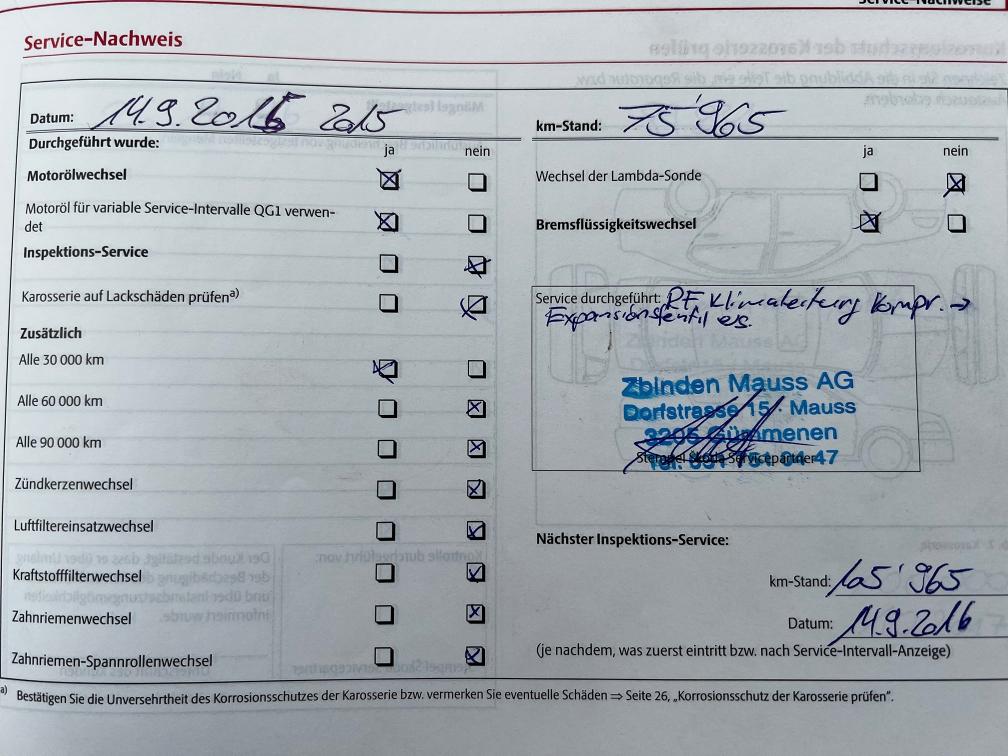 Service-Nachweise
Service-Nachweis
Datum: 14.9.2016 2015
Durchgeführt wurde:
ja nein
Motorölwechsel
Motoröl für variable Service-Intervalle QG1 verwen-
det
Inspektions-Service
Karosserie auf Lackschäden prüfen a)
Zusätzlich
Alle 30 000 km
Alle 60 000 km
Alle 90 000 km
Zündkerzenwechsel
Luftfiltereinsatzwechsel
Kraftstofffilterwechsel
Zahnriemenwechsel
Zahnriemen-Spannrollenwechsel
km-Stand: 75'965
ja nein
Wechsel der Lambda-Sonde
Bremsflüssigkeitswechsel
Service durchgeführt: RF Klimaleitung Kompr. →
Expansionsventil es.
Zbinden Mauss AG
Dorfstrasse 15 Mauss
3205 Gümmenen
Stempel Škoda Servicepartner
Tel. 031 751 47
Nächster Inspektions-Service:
km-Stand: 105'965
Datum: 14.9.2016
(je nachdem, was zuerst eintritt bzw. nach Service-Intervall-Anzeige)
a) Bestätigen Sie die Unversehrtheit des Korrosionsschutzes der Karosserie bzw. vermerken Sie eventuelle Schäden ⇒ Seite 26, „Korrosionsschutz der Karosserie prüfen“.